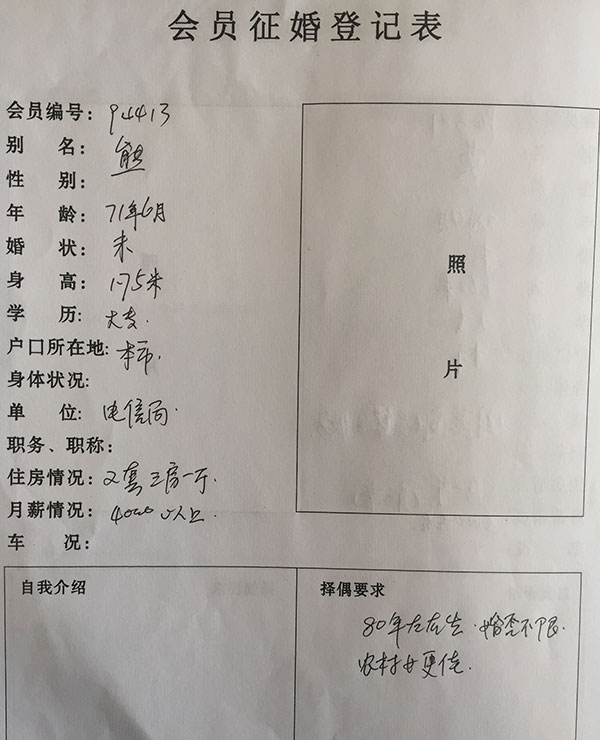 会员征婚登记表
会员编号: 94413
别 名: 熊
性 别:
年 龄: 71年6月
婚 状: 未
身 高: 1.75米
学 历: 大专.
户口所在地: 本市.
身体状况:
单 位: 电信局.
职务、职称:
住房情况: 2套三房一厅.
月薪情况: 4000以上.
车 况:
照
片
自我介绍
择偶要求
80年左右生.婚否不限.
农村女更佳.